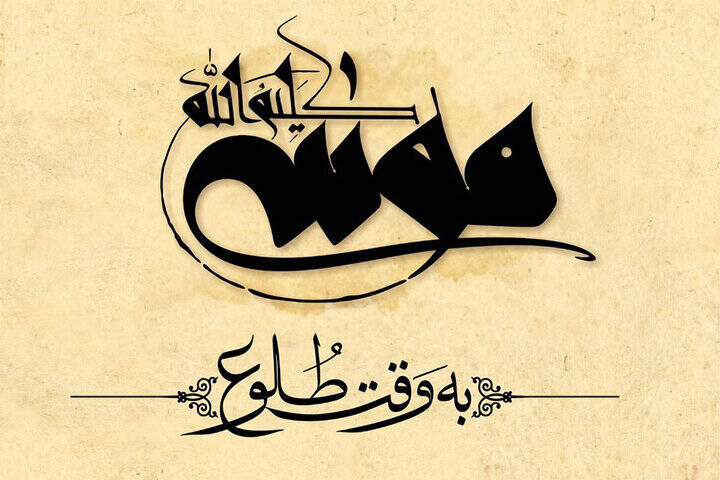 موسی
کلیم الله
به وقت طلوع